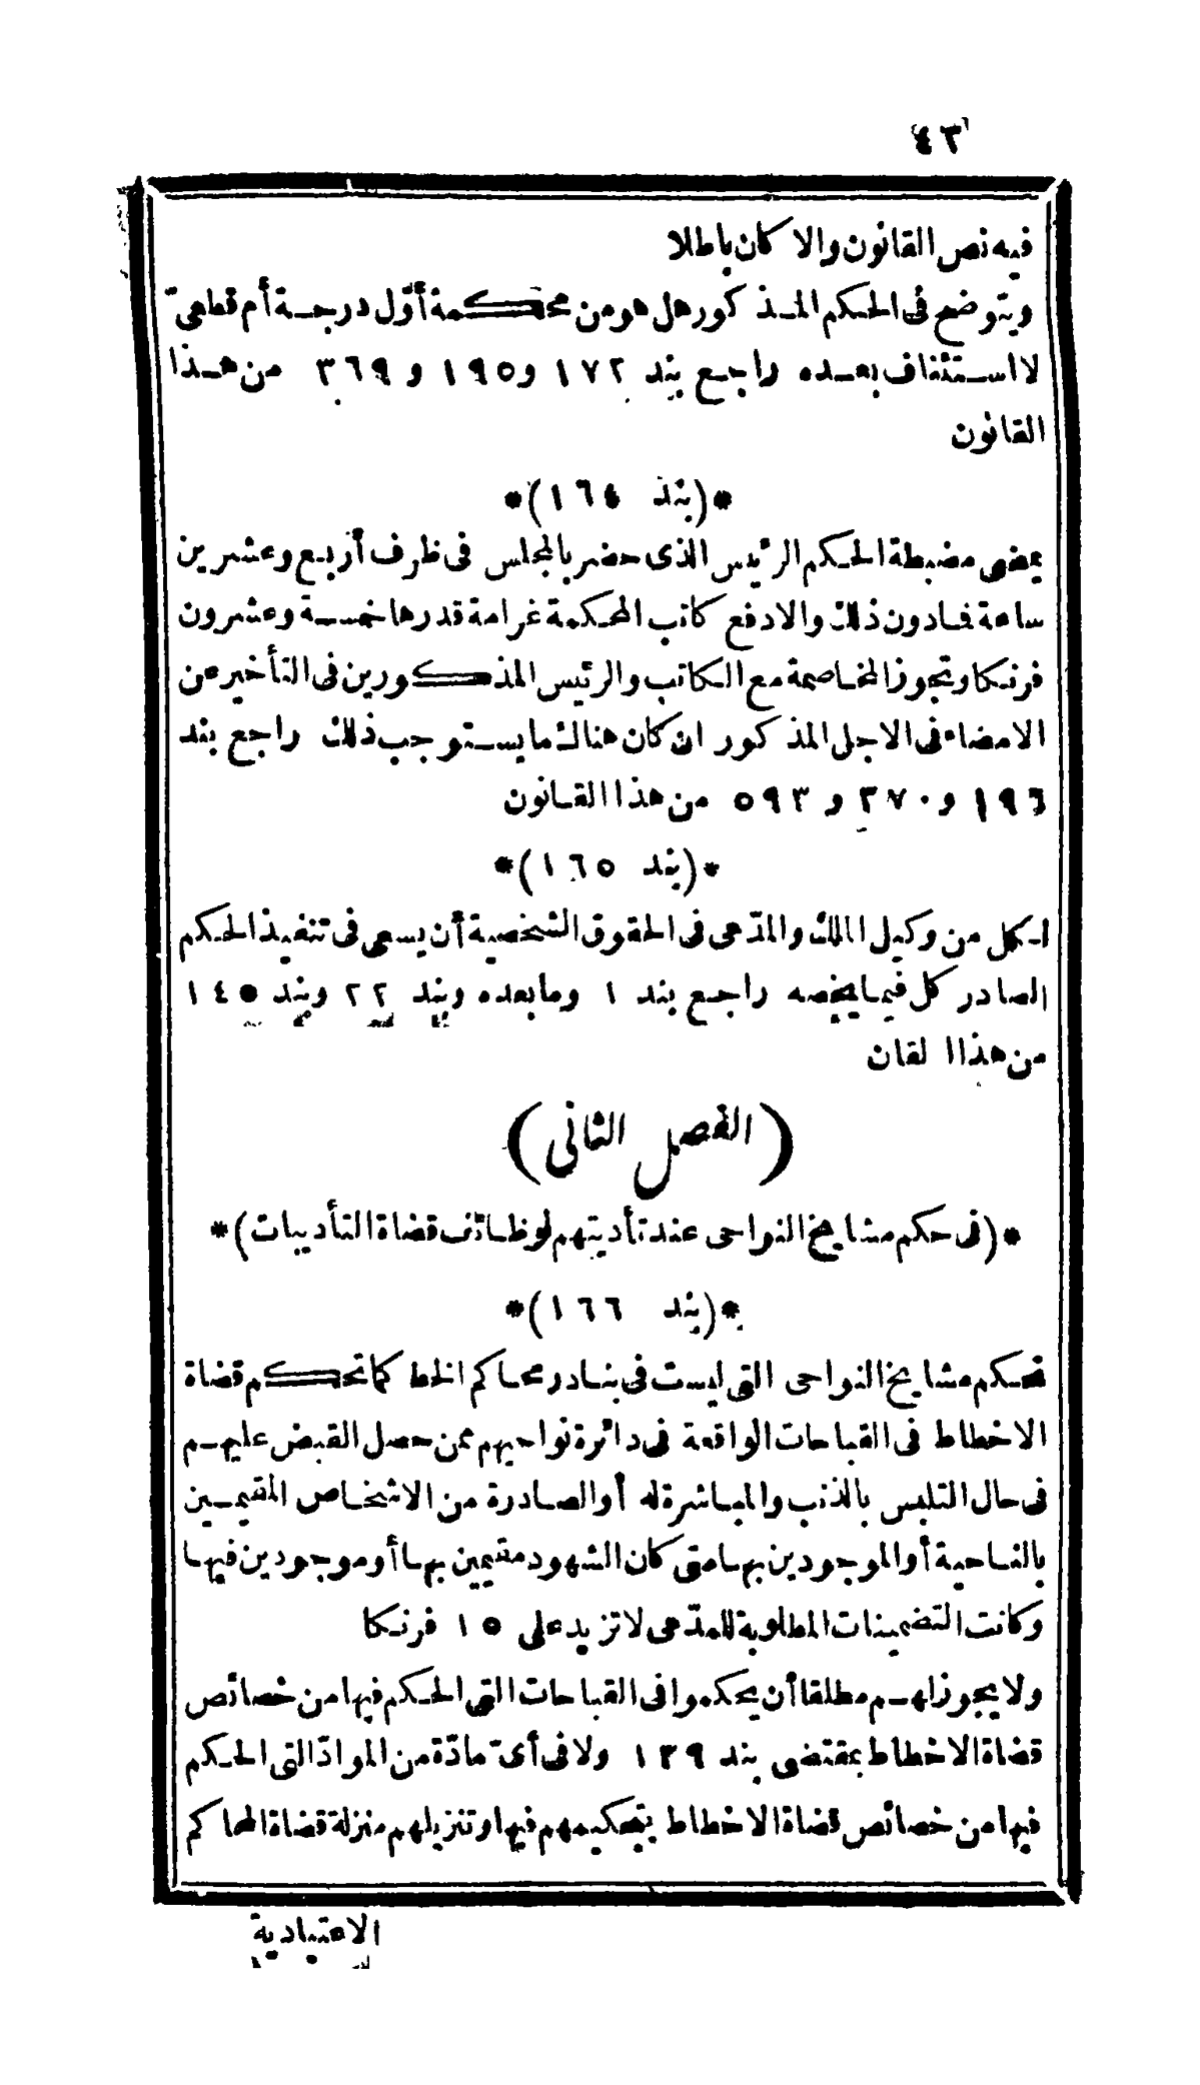 ٤٣
فيه نص القانون والا كان باطلا
ويتوضح فى الحكم المذكور هل هو من محكمة أوّل درجة أم قطعىّ
لا استئناف بعده راجع بند ١٧٢ و١٩٥ و ٣٦٩ من هذا
القانون
*(بند ١٦٤)*
يمضى مضبطة الحكم الرئيس الذى حضر بالمجلس فى ظرف أربع وعشرين
ساعة فادون ذلك والادفع كاتب المحكمة غرامة قدرها خمسة وعشرون
فرنكا وتجوز المخاصمة مع الكاتب والرئيس المذكورين فى التأخير عن
الامضاء فى الاجل المذكور ان كان هناك ما يستوجب ذلك راجع بند
١٩٦ و٣٧٠ و ٥٩٣ من هذا القانون
*(بند ١٦٥)*
لكل من وكيل الملك والمدّعى فى الحقوق الشخصية أن يسعى فى تنفيذ الحكم
الصادر كل فيما يخصه راجع بند ١ وما بعده وبند ٢٢ وبند ١٤٥
من هذا القان
(الفصل الثانى)
*(فى حكم مشايخ النواحى عند تأديتهم لوظائف قضاة التأديبات)*
*(بند ١٦٦)*
تحكم مشايخ النواحى التى ليست فى بنادر محاكم الخط كما تحكم قضاة
الاخطاط فى القباحات الواقعة فى دائرة نواحيهم ممن حصل القبض عليهم
فى حال التلبس بالذنب والمباشرة له أو الصادرة من الاشخاص المقيمين
بالناحية أو الموجودين بها متى كان الشهود مقيمين بها أو موجودين فيها
وكانت التضمينات المطلوبة للمدّعى لا تزيد على ١٥ فرنكا
ولا يجوز لهم مطلقا أن يحكموا فى القباحات التى الحكم فيها من خصائص
قضاة الاخطاط بمقتضى بند ١٣٩ ولا فى أىّ مادّة من الموادّ التى الحكم
فيها من خصائص قضاة الاخطاط بتحكيمهم فيها وتنزيلهم منزلة قضاة المحاكم
الاعتيادية